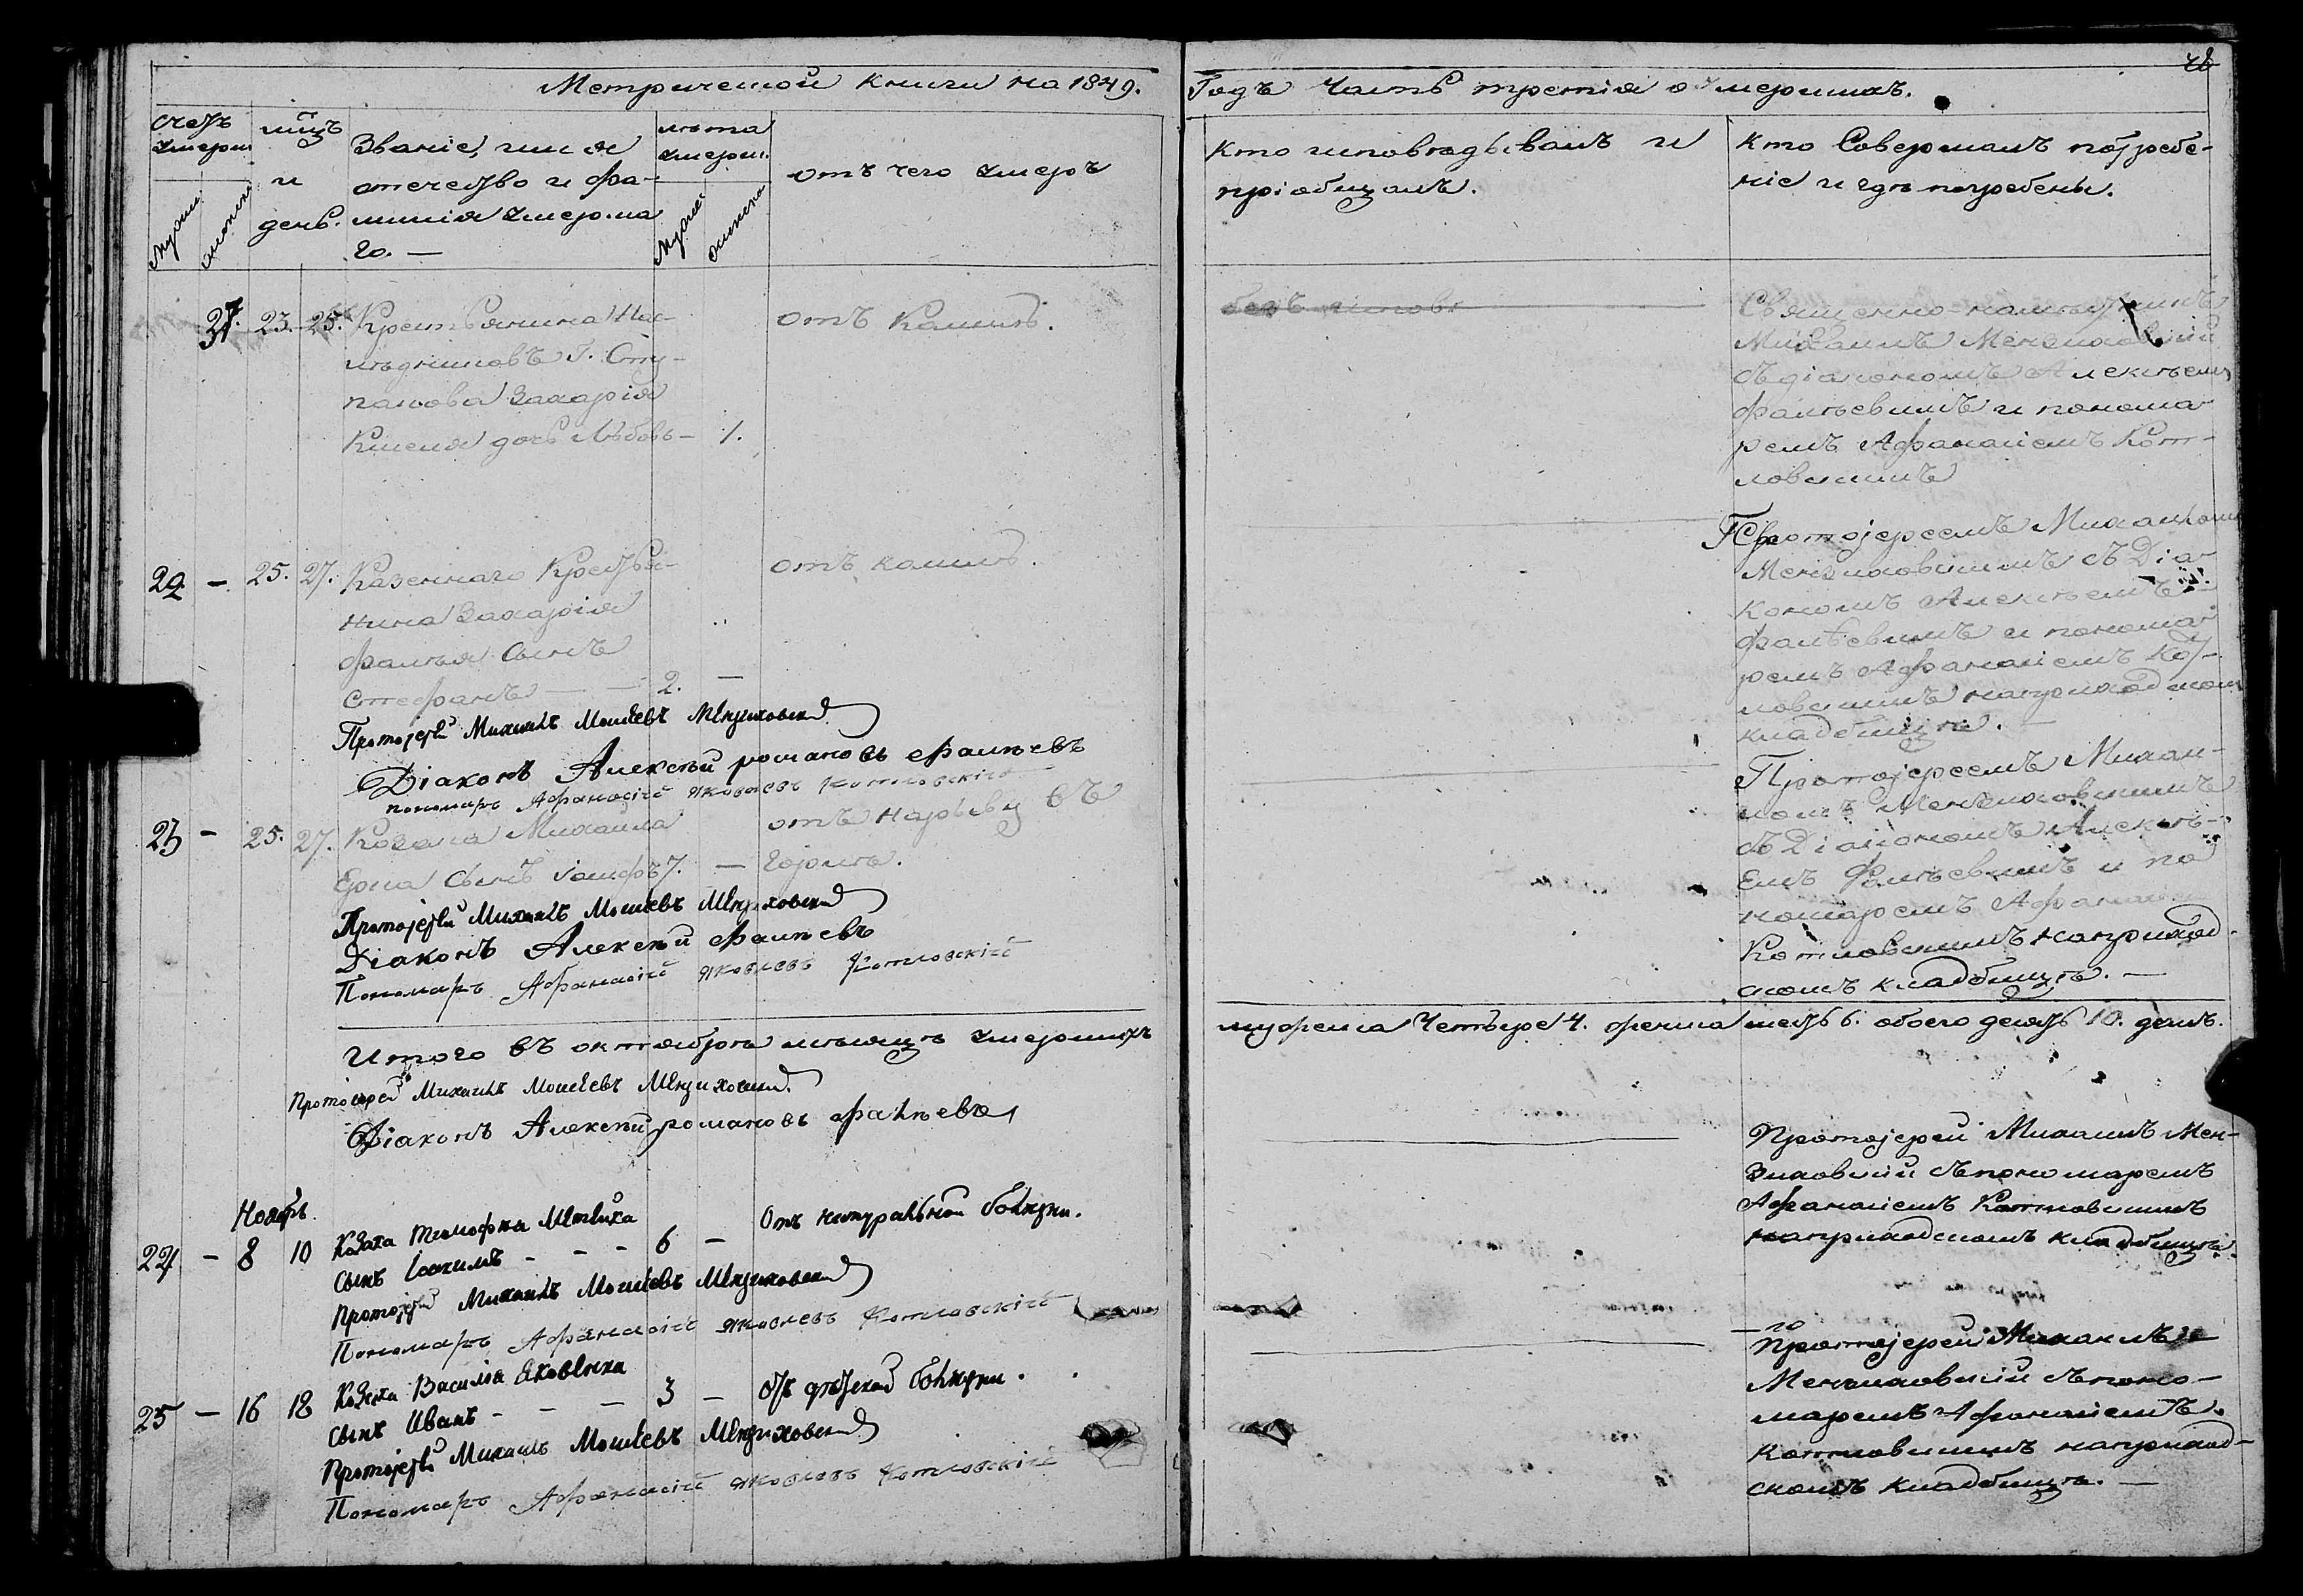 Метрической книги на 1849.
Годъ Часть третія о умершихъ.
счетъ умерш
мцъ и день.
Званіе, имя
отечество и фа-
милія умерша
го. —
лѣта умерш.
отъ чего умеръ
кто исповѣдывалъ и
пріобщалъ.
Кто Совершалъ погребе-
ніе и гдѣ погребены.
23. 25. Крестьянина Нас-
лѣдниковъ Г. Сту-
пакова Захарія
Киселя дочь Любовь — 1.
отъ Кашлю.
Священно-намѣстникъ
Михаилъ Мензиховскій
съ діакономъ Алексѣемъ
Фалѣевимъ и понома
ремъ Афанасіемъ Кот-
ловскимъ
22 — 25. 27. Казеннаго Крестья-
нина Захарія
Фалѣя Сынъ
Стефанъ — — 2. —
отъ кашлю.
Протоіереемъ Михаиломъ
Мензиховскимъ съ Діа
кономъ Алексѣемъ
Фалѣевимъ и понома
ремъ Афанасіемъ Кот-
ловскимъ наприходском
кладбищѣ.
Протоіерей Михаилъ Моисеевъ Мензиховскій
Діаконъ Алексѣй романовъ Фалѣевъ
пономаръ Афанасій Яковлевъ Котловскій
23 — 25. 27. Козака Михаила
Ерма Сынъ Іосифъ 7. —
отъ нарыву въ
горлѣ.
Протоіереемъ Михаи-
ломъ Мензиховскимъ
съ Діакономъ Алексѣ-
емъ Фалѣевимъ и по
номаремъ Афанасі
Котловскимъ наприход-
скомъ кладбищѣ. —
Протоіерей Михаилъ Моисеевъ Мензиховскій
Діаконъ Алексѣй Фалѣевъ
Пономаръ Афанасій Яковлевъ Котловскій
Итого въ октябрѣ мѣсяцѣ умершихъ
мужеска Четыре 4. женска шесть 6. обоего десять 10. душъ.
Протоіерей Михаилъ Моисеевъ Мензиховскій.
Діаконъ Алексѣй романовъ Фалѣевъ
Ноябрь.
24 — 8 10 Козака Тимофѣя
сынъ Іоакимъ — — — 6 —
Отъ натуральной болѣзни.
Протоіерей Михаилъ Мен-
зиховскій съ пономаремъ
Афанасіемъ Котловскимъ
наприходскомъ кладбищѣ.
Протоіерей Михаилъ Моисеевъ Мензиховскій
Пономаръ Афанасій Яковлевъ Котловскій
25 — 16 18 Козака Василія Яковенка
сынъ Иванъ — — — 3 —
отъ дѣтской болѣзни.
Протоіерей Михаилъ
Мензиховскій съ поно-
маремъ Афанасіемъ
Котловскимъ наприход-
скомъ кладбищѣ. —
Протоіерей Михаилъ Моисеевъ Мензиховскій
Пономаръ Афанасій Яковлевъ Котловскій